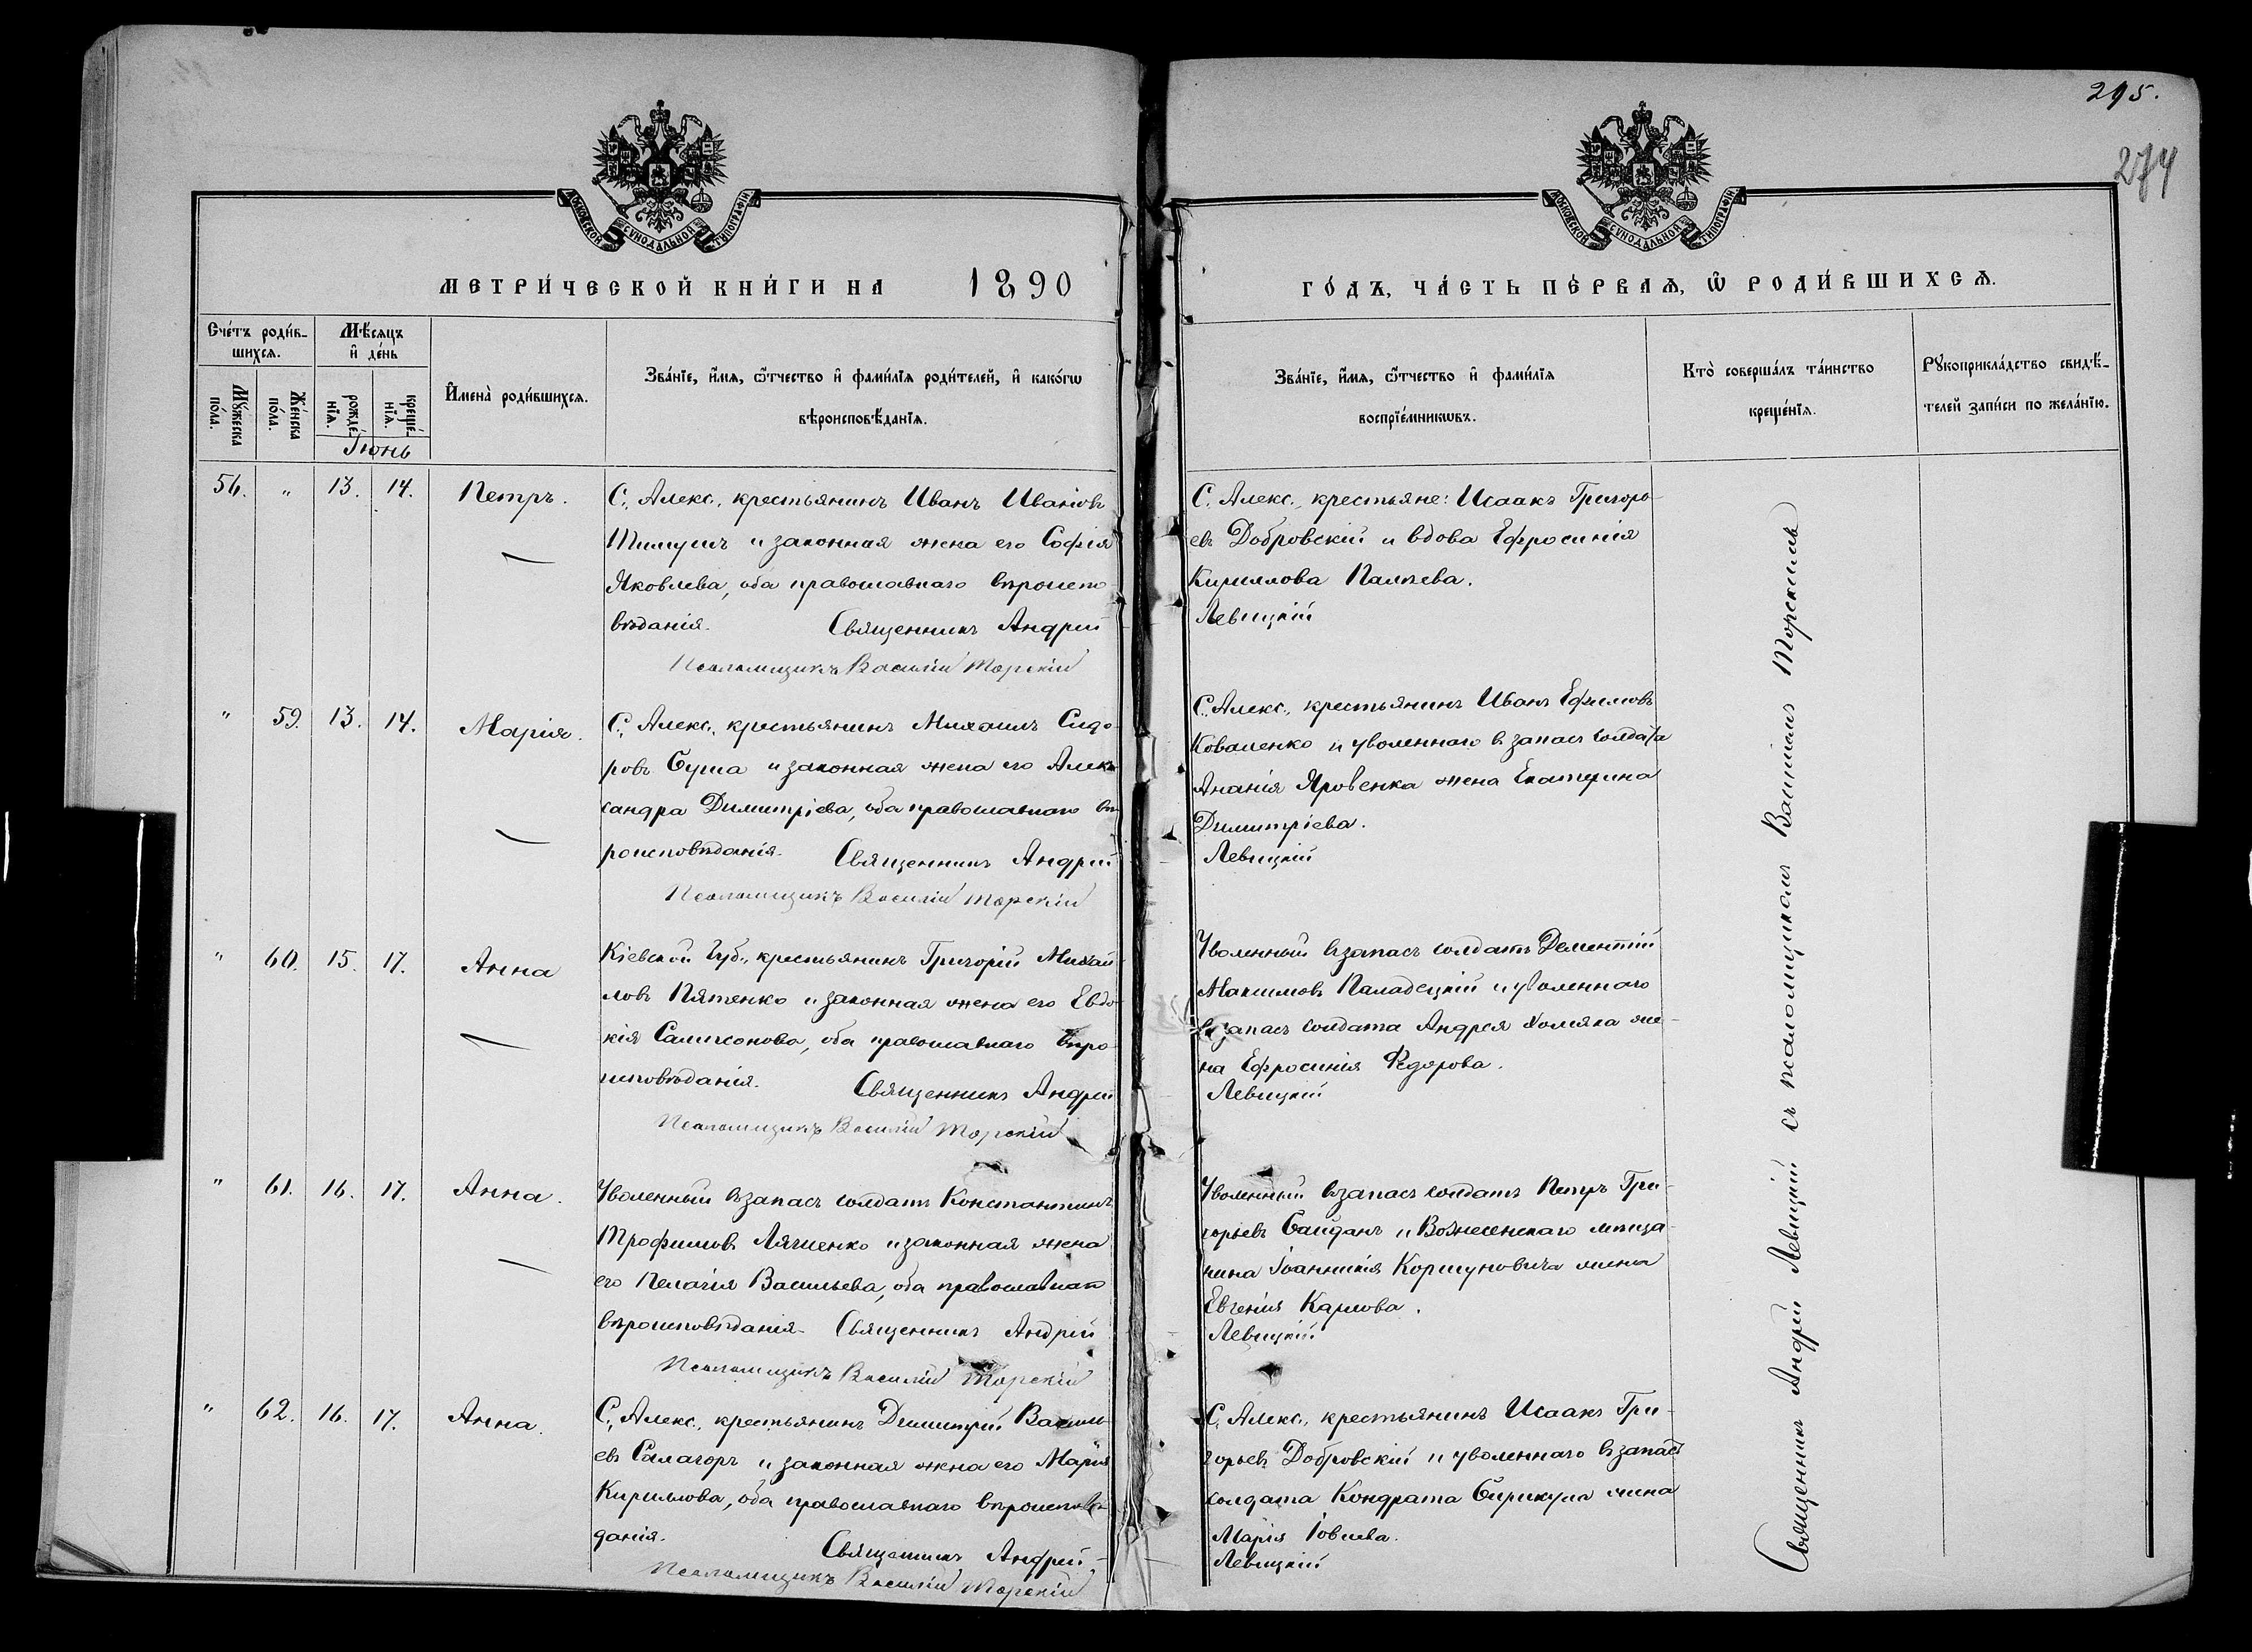 295.
274
МОСКОВСКОЙ СѴНОДАЛЬНОЙ ТИПОГРАФІИ
МОСКОВСКОЙ СѴНОДАЛЬНОЙ ТИПОГРАФІИ
МЕТРИ́ЧЕСКОЙ КНИ́ГИ НА 1890
ГО́ДЪ, ЧА́СТЬ ПЕ́РВАѦ, Ѿ РОДИ́ВШИХСѦ.
Сче́тъ роди́в-
шихсѧ.
Мѣ́сѧцъ
и҆ де́нь
Мꙋ́жеска
по́ла.
Же́нска
по́ла.
рожде́-
нїѧ.
креще́-
нїѧ.
Іюнь
И҆мена̀ роди́вшихсѧ.
Зва́нїе, и҆́мѧ, ѻ҆́тчество и҆ фами́лїѧ роди́телей, и҆ како́гѡ
вѣроисповѣ́данїѧ.
Зва́нїе, и҆́мѧ, ѻ҆́тчество и҆ фами́лїѧ
воспрїе́мникѡвъ.
Кто̀ соверша́лъ та́инство
креще́нїѧ.
Рꙋкоприкла́дство свидѣ́-
телей за́писи по жела́нїю.
56. " 13. 14. Петръ.
С. Алекс. крестьянинъ Иванъ Ивановъ
Тимушъ и законная жена его Софія
Яковлева, оба православнаго вѣроиспо-
вѣданія. Священникъ Андрей
Псаломщикъ Василій Торскій
С. Алекс. крестьяне: Исаакъ Григорь-
евъ Добровскій и вдова Ефросинія
Кириллова Палѣева.
Левицкій
" 59. 13. 14. Марія.
С. Алекс. крестьянинъ Михаилъ Сидо-
ровъ Буша и законная жена его Алек-
сандра Димитріева, оба православнаго вѣ-
роисповѣданія. Священникъ Андрей
Псаломщикъ Василій Торскій
С. Алекс. крестьянинъ Иванъ Ефимовъ
Коваленко и уволеннаго в запасъ солдата
Ананія Яровенка жена Екатерина
Димитріева.
Левицкій
" 60. 15. 17. Анна
Кіевской губ., крестьянинъ Григорій Михай-
ловъ Пятенко и законная жена его Евдо-
кія Сампсонова, оба православнаго вѣро-
исповѣданія. Священникъ Андрей
Псаломщикъ Василій Торскій
Уволенный в запасъ солдатъ Дементій
Максимовъ Паладецкій и уволеннаго
в запасъ солдата Андрея Хомяка же-
на Ефросинія Федорова.
Левицкій
" 61. 16. 17. Анна.
Уволенный в запасъ солдатъ Константинъ
Трофимовъ Ляшенко и законная жена
его Пелагія Васильева, оба православнаго
вѣроисповѣданія. Священникъ Андрей
Псаломщикъ Василій Торскій
Уволенный в запасъ солдатъ Петръ Гри-
горьевъ Сайданъ и Вознесенскаго мѣща-
нина Іоанникія Коршуновича жена
Евгенія Карпова.
Левицкій
" 62. 16. 17. Анна.
С. Алекс., крестьянинъ Димитрій Василь-
евъ Салагоръ и законная жена его Марія
Кириллова, оба православнаго вѣроисповѣ-
данія. Священникъ Андрей
Псаломщикъ Василій Торскій
С. Алекс., крестьянинъ Исаакъ Гри-
горьевъ Добровскій и уволеннаго в запасъ
солдата Кондрата жена
Марія Іовлева.
Левицкій
Священникъ Андрей Левицкій съ псаломщикомъ Василіемъ Торскимъ